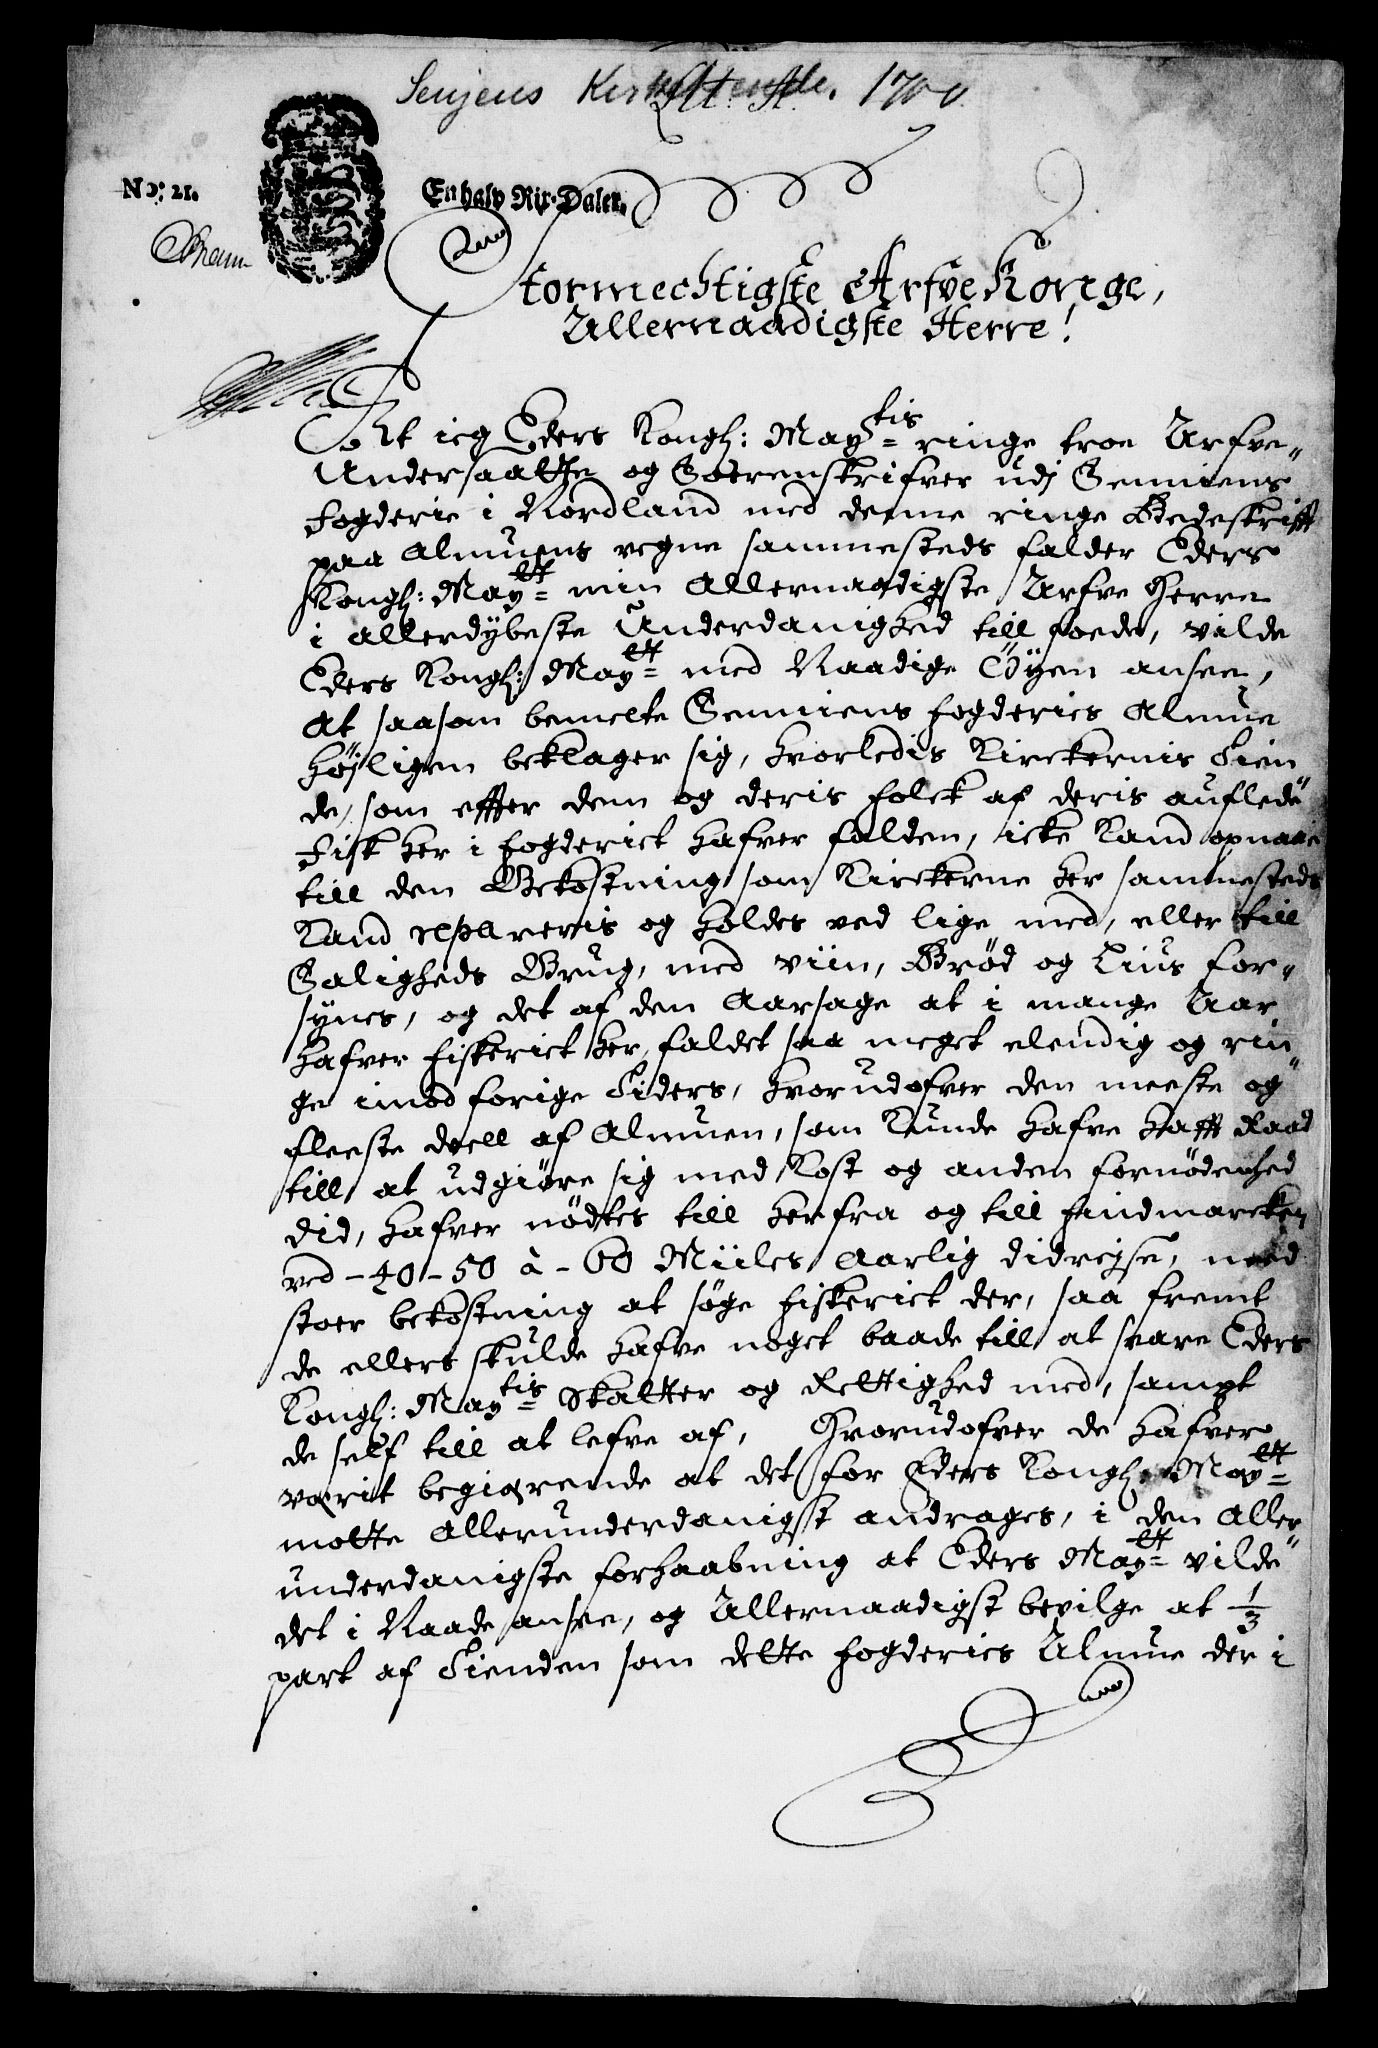 Senjens Kirketiende. 1700
No: 21.
En halv Rix-Daler.
Stormechtigste Arfve Konge,
Allernaadigste Herre!
At ieg Eders Kongl: May=tis ringe troe Arfve-
Undersaatte og Sorenskrifver udj Senniens
fogderie i Nordland med denne ringe Bedeskrifft
paa Almuens vegne sammesteds falder Eders
Kongl: May=tt min Allernaadigste Arfve Herre
i allerdybeste Underdanighed till foede, vilde
Eders Kongl: May=tt med Naadige Öyen ansee,
At saasom bemelte Senniens fogderies Almue
höjligen beklager sig, hvorledis Kirckernis Tien
de, som effter dem og deris folck af deris auflede
Fisk her i fogderiet hafver falden, icke Kand opnaae
till den Bekostning som Kirckerne her sammesteds
Kand repareris og holdes ved lige med, eller till
Saligheds Brug, med viin, Brød og Lius for-
synes, og det af den Aarsage at i mange Aar
hafver fiskeriet her faldet saa meget elendig og rin-
ge imod forige Tiders, hvorudofver den meeste og
fleeste deell af Almuen, som Kunde hafve hafft Raad
till at udgiøre sig med Kost og anden fornødenhed
did, hafver nödtes till herfra og till findmarcken
ved - 40 - 50 à - 60 Miiles Aarlig didrejse, med
stoer bekostning at søge fiskeriet der, saa fremt
de ellers skulde hafve noget baade till at svare Eders
Kongl: May=tis Skatter og Rettighed med, sampt
de self till at lefve af, Hvorudofver de hafver
værit begiærende at det for Eders Kongl: May=tt
motte Allerunderdanigst andrages, i den Aller-
underdanigste forhaabning at Eders May=tt vilde
det i Naade ansee, og Allernaadigst bevilge at 1/3
part af Tienden som dette fogderies Almue der i